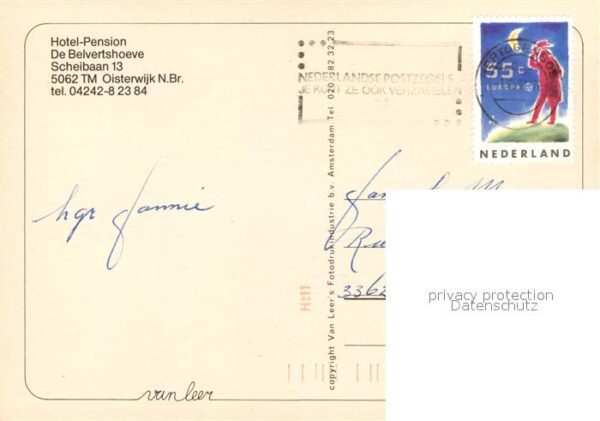 Hotel-Pension
De Belvertshoeve
Scheibaan 13
5062 TM Oisterwijk N.Br.
tel. 04242-8 23 84
NEDERLANDSE POSTZEGELS
JE KUNT ZE OOK VERZAMELEN
55 c
EUROPA
NEDERLAND
copyright Van Leer's Fotodrukindustrie b.v. Amsterdam Tel. 020-82 32 23
hgr Jannie
3362
privacy protection
Datenschutz
van leer